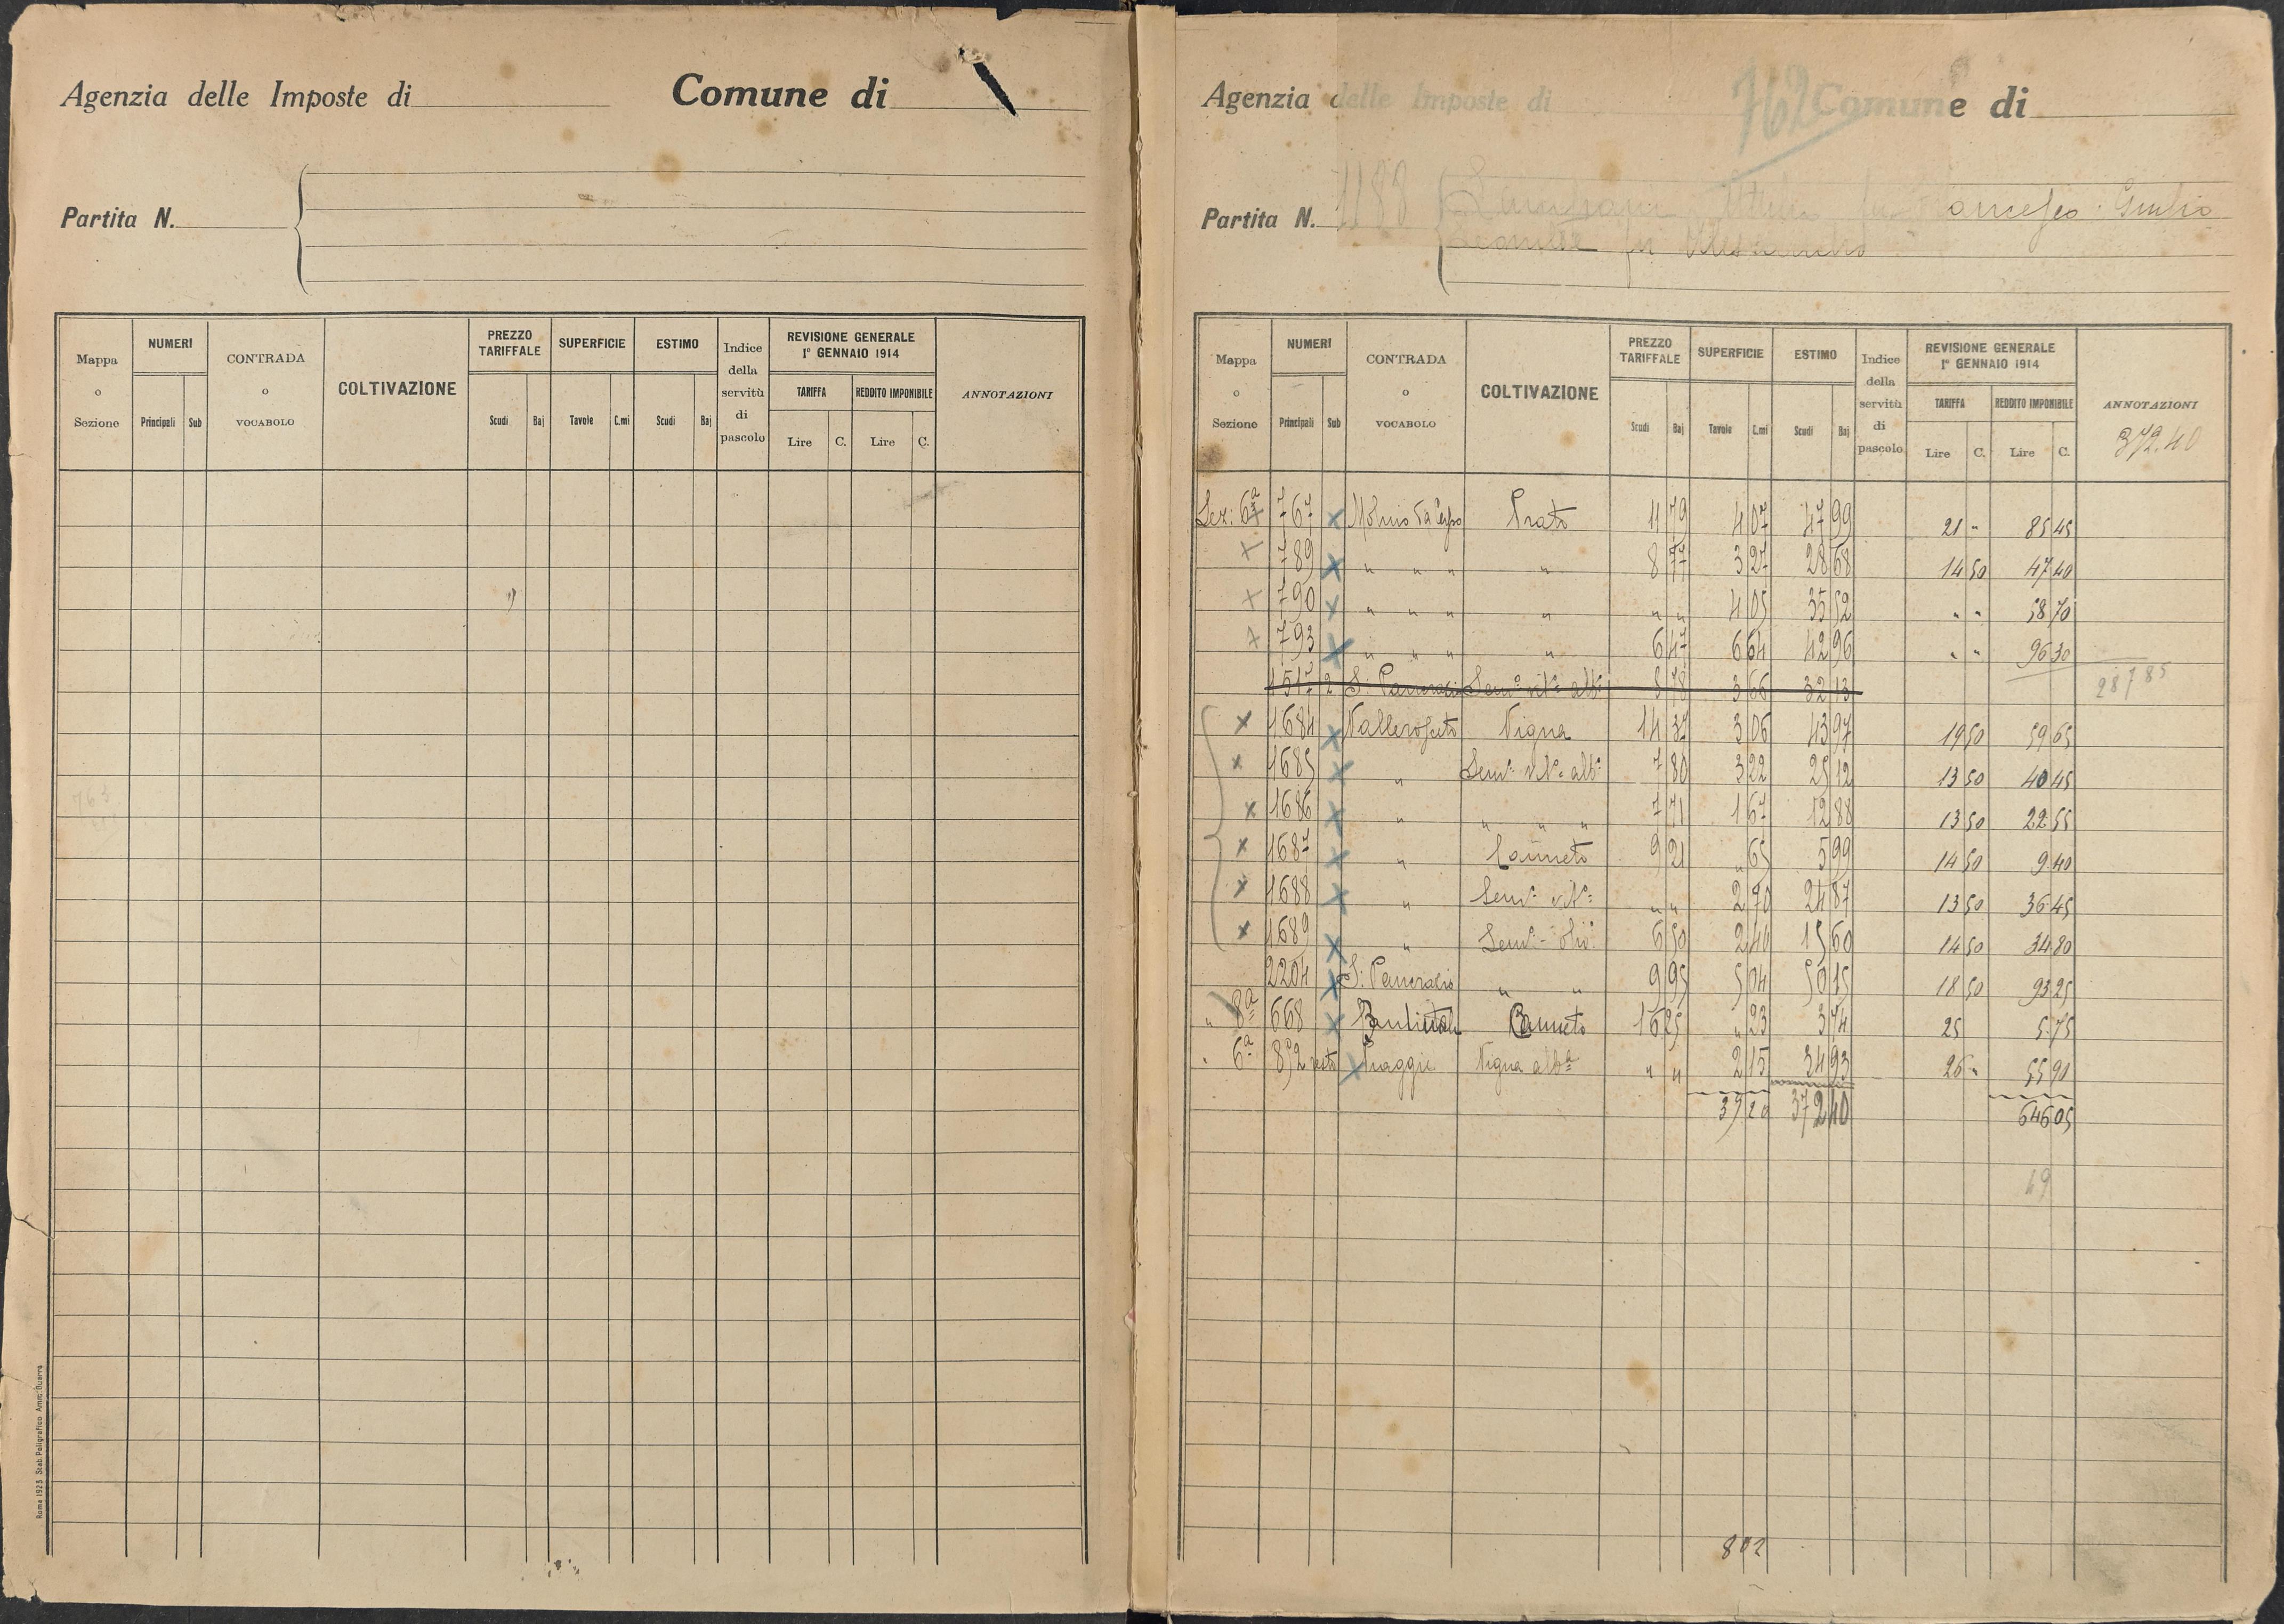 Agenzia delle Imposte di Comune di
Partita N.
Mappa o Sezione NUMERI Principali Sub CONTRADA o VOCABOLO COLTIVAZIONE PREZZO TARIFFALE Scudi Baj SUPERFICIE Tavole C.mi ESTIMO Scudi Baj Indice della servitù di pascolo REVISIONE GENERALE 1° GENNAIO 1914 TARIFFA Lire C. REDDITO IMPONIBILE Lire C. ANNOTAZIONI
763
Roma 1923 Stab. Poligrafico Amm. Guerra
762
Agenzia delle Imposte di Comune di
Partita N. 1188 fu Francesco Giulio
fu
Mappa o Sezione NUMERI Principali Sub CONTRADA o VOCABOLO COLTIVAZIONE PREZZO TARIFFALE Scudi Baj SUPERFICIE Tavole C.mi ESTIMO Scudi Baj Indice della servitù di pascolo REVISIONE GENERALE 1° GENNAIO 1914 TARIFFA Lire C. REDDITO IMPONIBILE Lire C. ANNOTAZIONI
372.40
Sez: 6ª 767 x Prato 11 79 4 07 47 99 21 " 85 45
x 789 x " " " " 8 77 3 27 28 68 14 50 47 40
x 790 x " " " " " " 4 05 35 52 " " 58 70
x 793 x " " " " 6 47 6 64 42 96 " " 96 30
1517 2 S. Pancrazio Semo vito albo 8 78 3 66 32 13 287 85
x 1684 x Vigna 14 37 3 06 43 97 19 50 59 65
x 1685 x " Semo vito albo 7 80 3 22 25 12 13 50 40 45
x 1686 x " " " " 7 71 1 67 12 88 13 50 22 55
x 1687 x " Canneto 9 21 " 65 5 99 14 50 9 40
x 1688 x " Semo vito " " 2 70 24 87 13 50 36 45
x 1689 x " Semo olivo 6 50 2 40 15 60 14 50 34 80
2204 x S. Pancrazio " " 9 95 5 04 50 15 18 50 93 25
" 8ª 668 x Canneto 16 25 " 23 3 74 25 5 75
" 6ª 892 resto x Piaggie Vigna albª " " 2 15 34 93 26 " 55 90
39 20 372 40 646 05
19
802